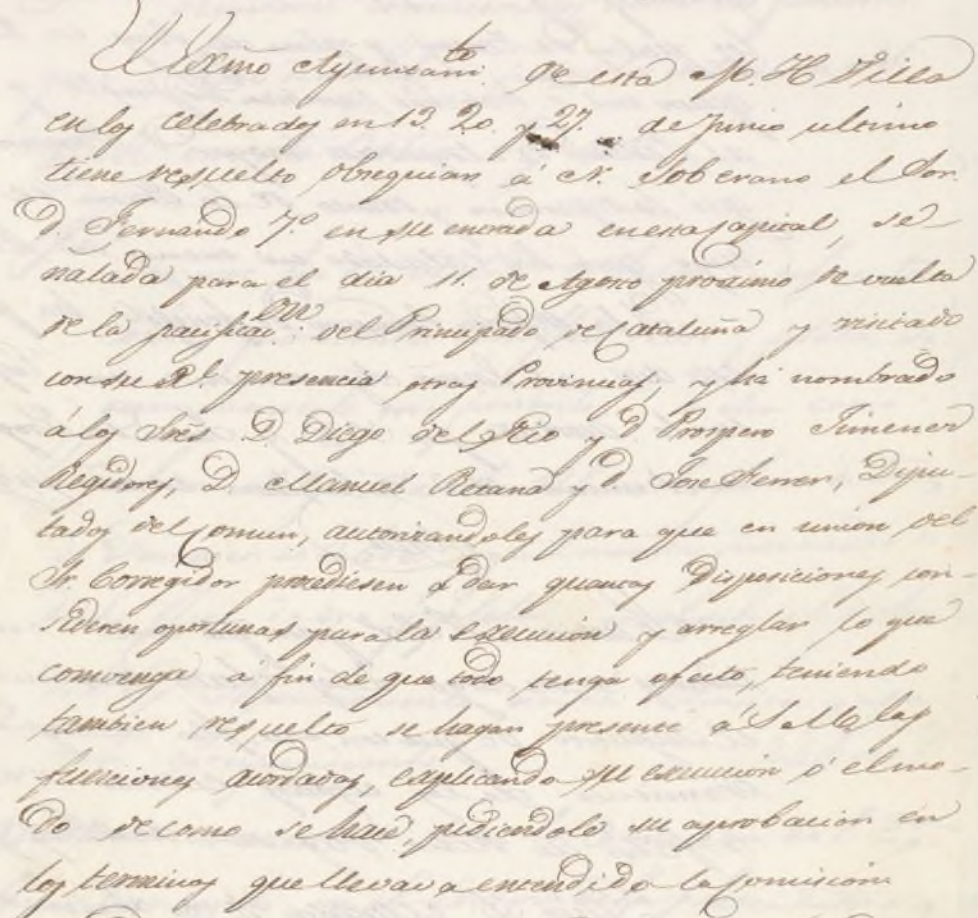 El Exmo Ayuntam.to de esta M. H. Villa
en los celebrados en 13. 20. y 27. de Junio ultimo
tiene resuelto obsequiar á N. Soberano el Sor.
D. Fernando 7.º en su entrada en esta Capital, se-
ñalada para el dia 11. de Agosto proximo de vuelta
de la pacificac.on del Principado de Cataluña y visitado
con su R.l presencia otras Provincias, y há nombrado
á los Sres D. Diego del Rio y D. Prospero Jimenez
Regidores, D. Manuel Retana y D. Jose Ferrer, Dipu-
tados del Comun, autorizandoles para que en union del
Sr. Corregidor procediesen á dar quantas disposiciones con-
sideren oportunas para la execucion y arreglar lo que
convenga á fin de que todo tenga efecto, teniendo
tambien resuelto se hagan presente á S. M. las
funciones acordadas, explicando su execucion ó el mo-
do de como se hace, pidiendole su aprobacion en
los terminos que lleva entendido la Comision